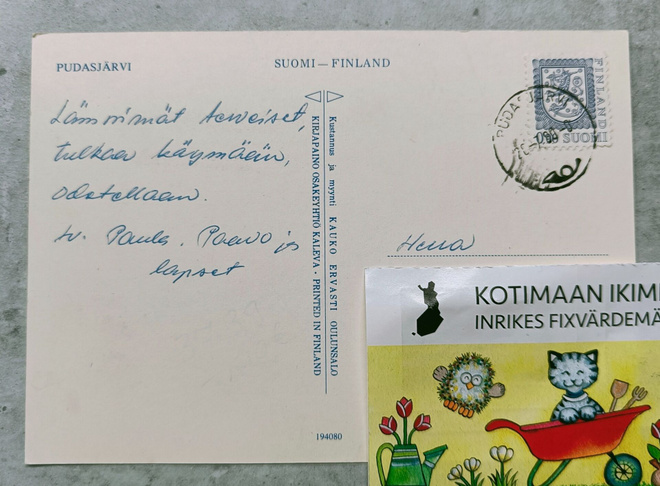 PUDASJÄRVI
SUOMI — FINLAND
Lämpimät terveiset,
tulkaa käymään,
odotellaan.
tv. Paula, Paavo ja
lapset
Kustannus ja myynti KAUKO ERVASTI OULUNSALO
KIRJAPAINO OSAKEYHTIÖ KALEVA • PRINTED IN FINLAND
194080
FINLAND
SUOMI
PUDASJÄRVI
Henna
KOTIMAAN IKIM
INRIKES FIXVÄRDEMÄ